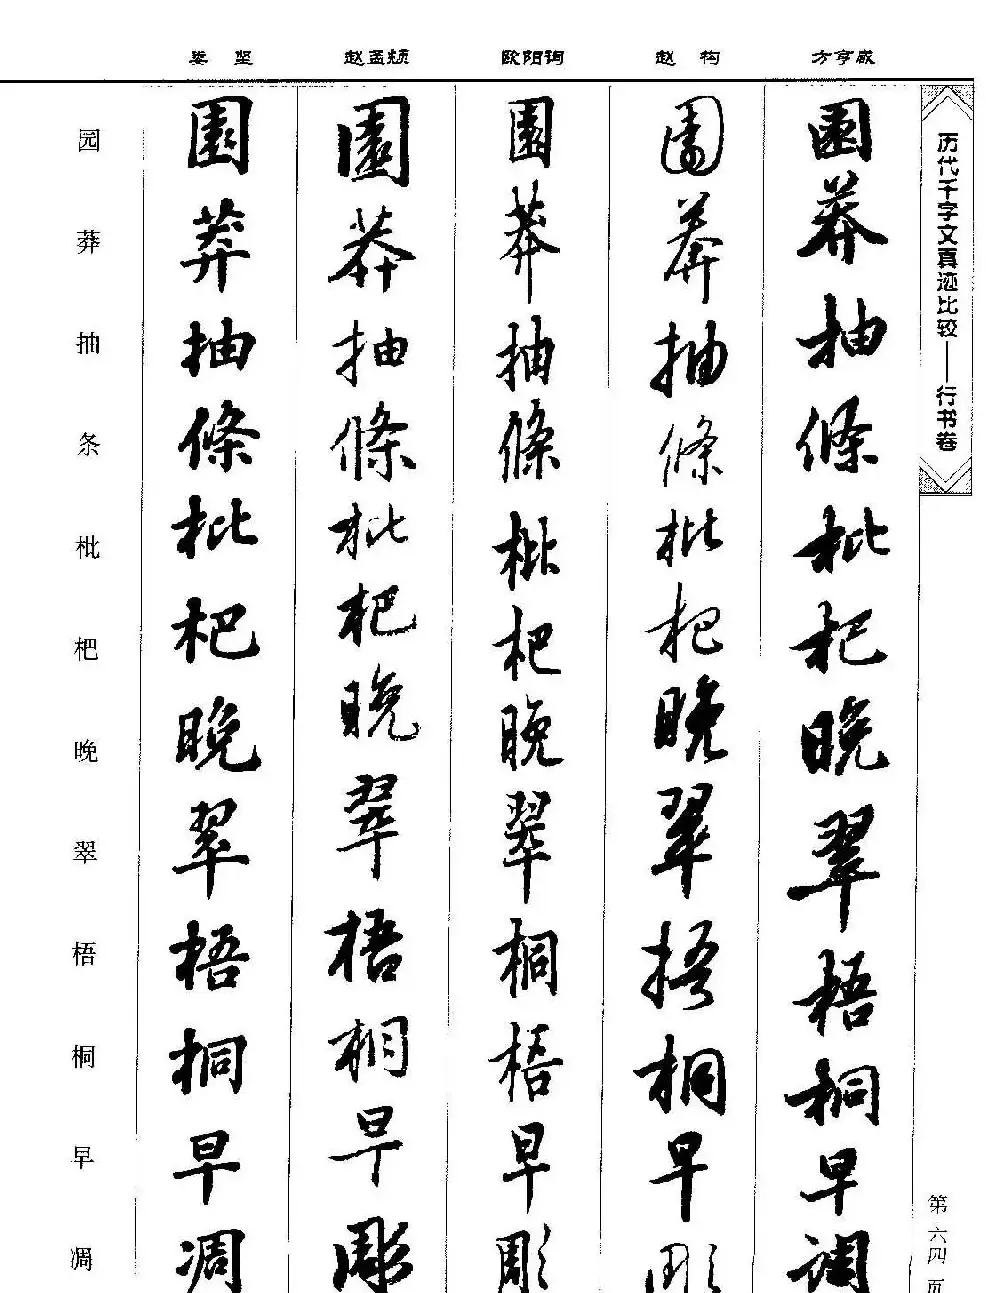 娄 坚 赵孟頫 欧阳询 赵 构 方亨咸
历代千字文真迹比较——行书卷
園莽抽條枇杷晚翠梧桐早調
園莽抽條枇杷晚翠梧桐早彫
園莽抽條枇杷晚翠桐梧早彫
園莽抽條枇杷晚翠梧桐早彫
園莽抽條枇杷晚翠梧桐早凋
园莽抽条枇杷晚翠梧桐早凋
第六四页